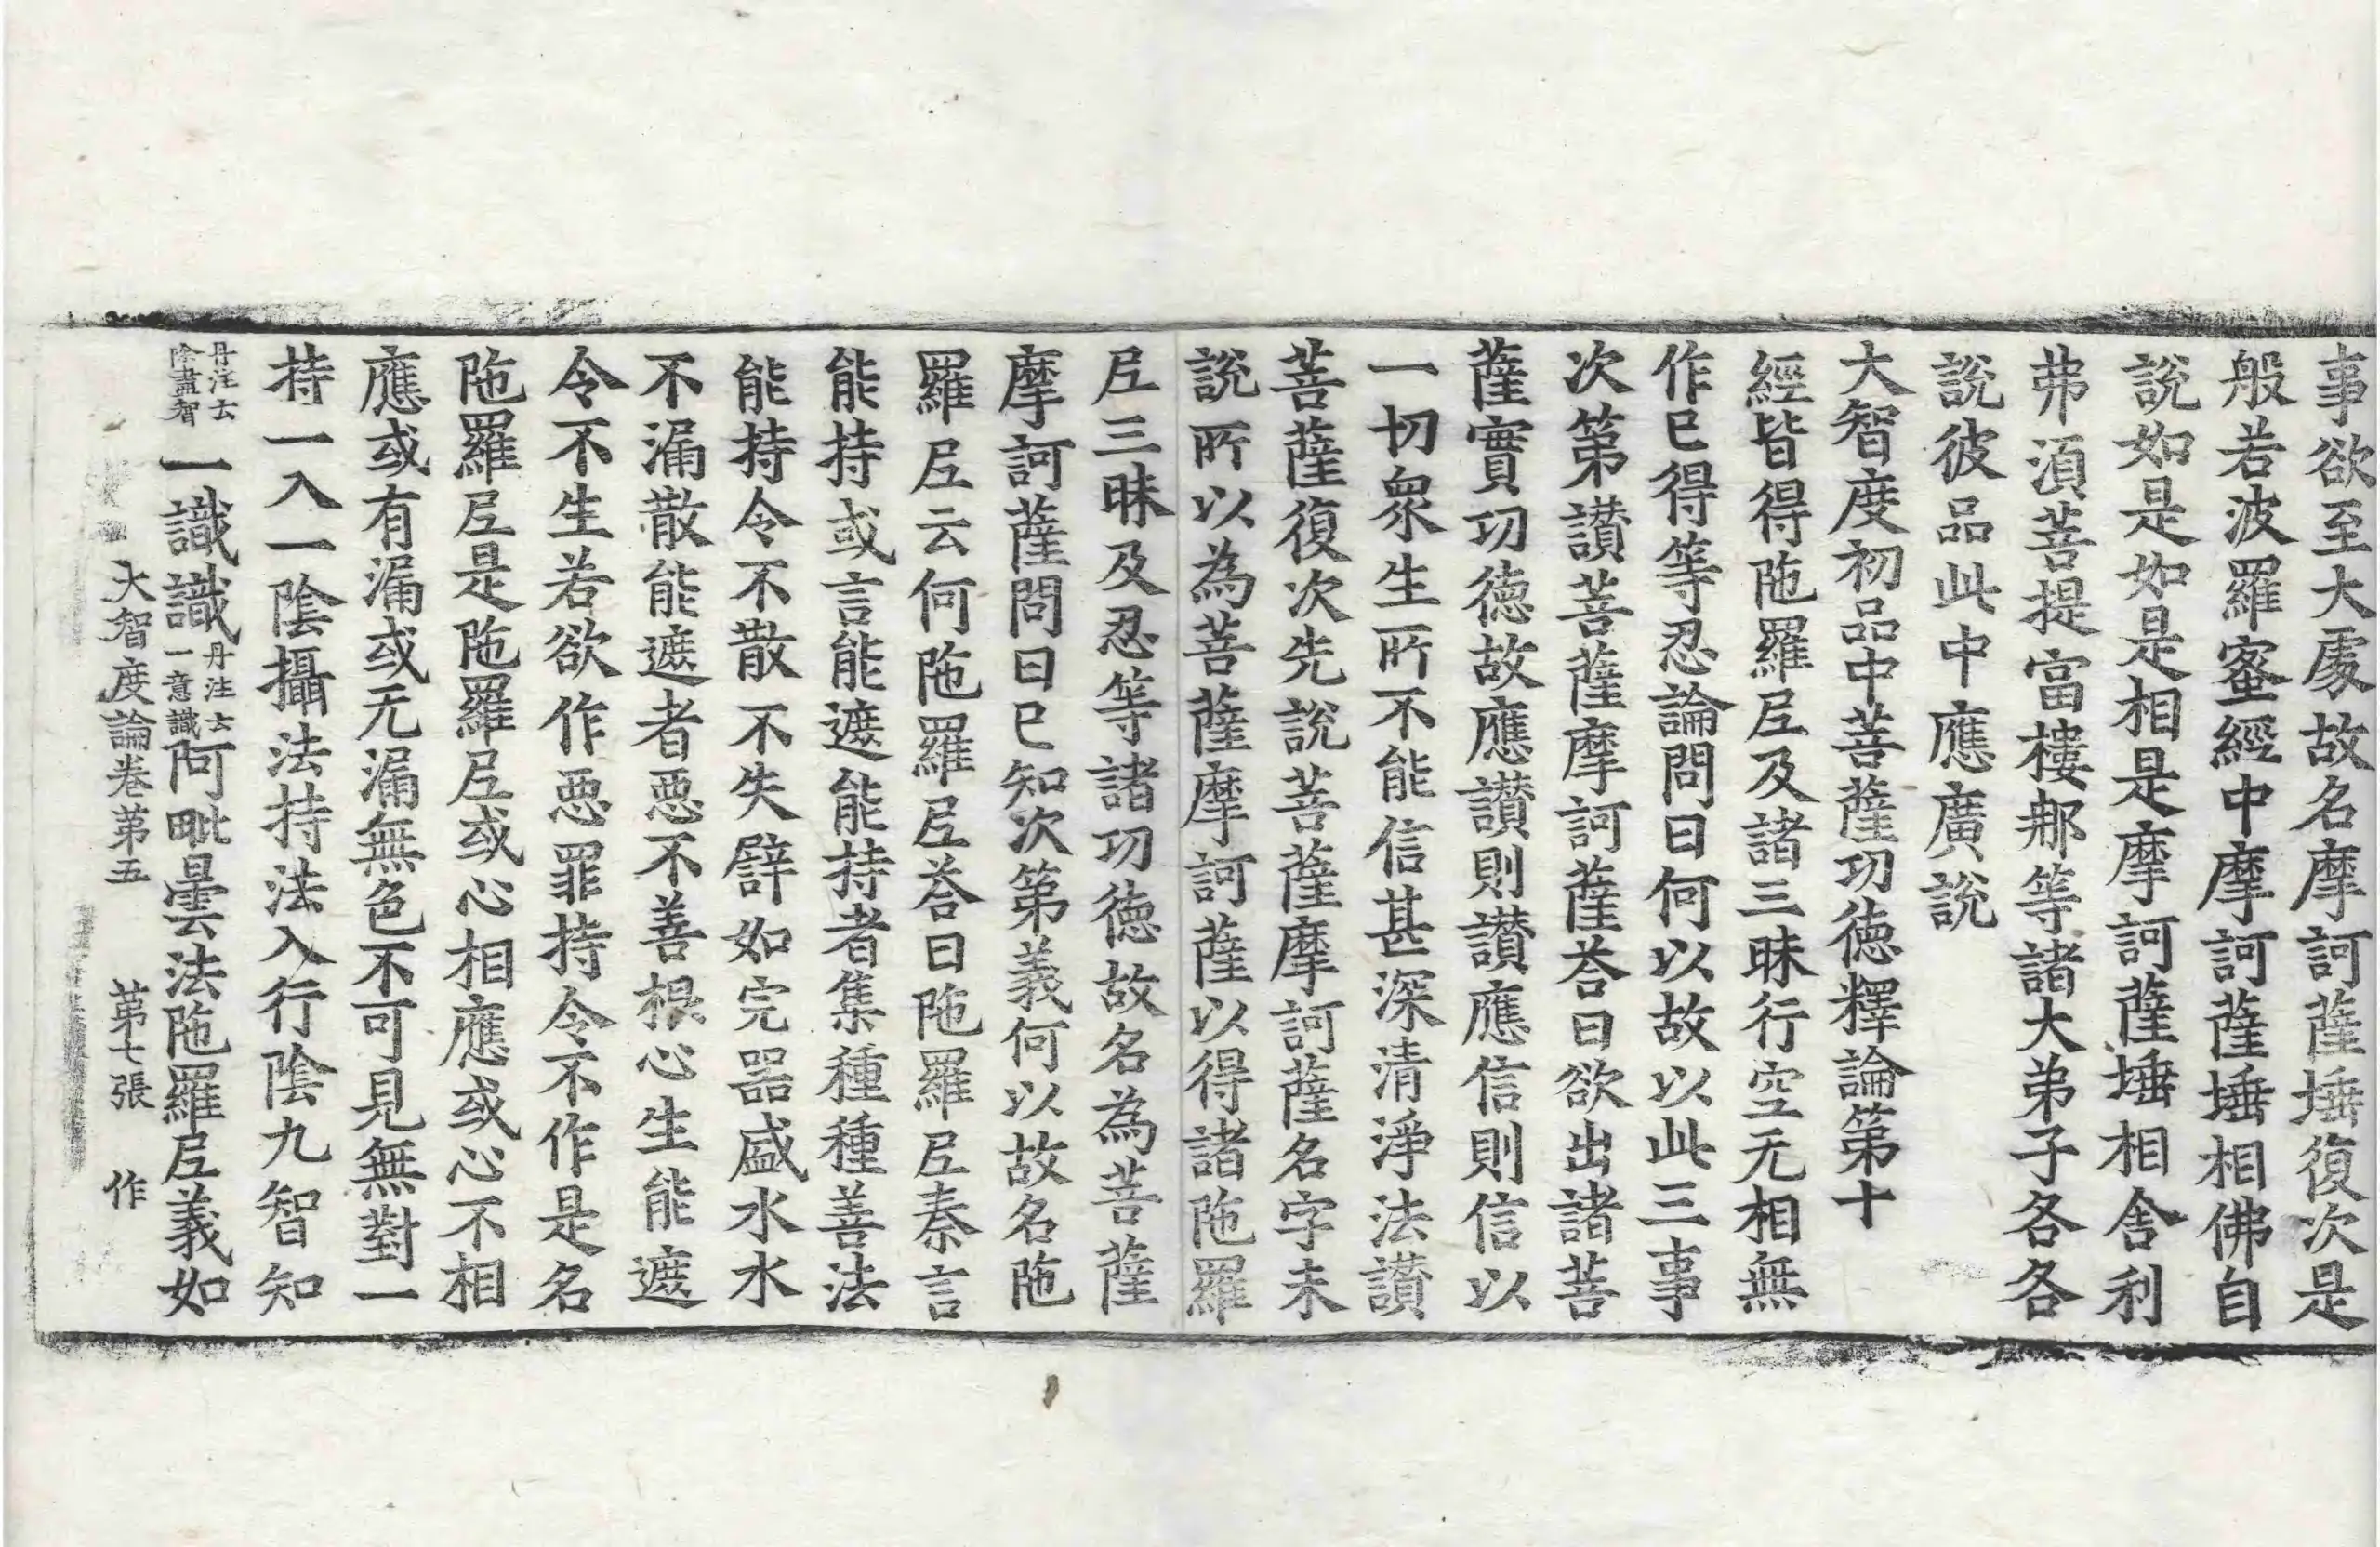 事欲至大處故名摩訶薩埵復次是
般若波羅蜜經中摩訶薩埵相佛自
說如是如是相是摩訶薩埵相舍利
弗湏菩提富樓那等諸大弟子各各
說彼品此中應廣說
大智度初品中菩薩功德釋論第十
經皆得陁羅𡰱及諸三昧行空无相無
作已得等忍論問曰何以故以此三事
次第讚菩薩摩訶薩荅曰欲出諸菩
薩實功德故應讚則讚應信則信以
一切衆生所不能信甚深清淨法讚
菩薩復次先說菩薩摩訶薩名字未
說所以為菩薩摩訶薩以得諸陁羅
𡰱三昧及忍等諸功德故名為菩薩
摩訶薩問曰已知次第義何以故名陁
羅𡰱云何陁羅𡰱荅曰陁羅𡰱秦言
能持或言能遮能持者集種種善法
能持令不散不失譬如完器盛水水
不漏散能遮者惡不善根心生能遮
令不生若欲作惡罪持令不作是名
陁羅𡰱是陁羅𡰱或心相應或心不相
應或有漏或无漏無色不可見無對一
持一入一陰攝法持法入行陰九智知
丹注云
除盡智
一識識
丹注云
一意識
阿毗曇法陁羅𡰱義如
大智度論卷第五 第七張 作